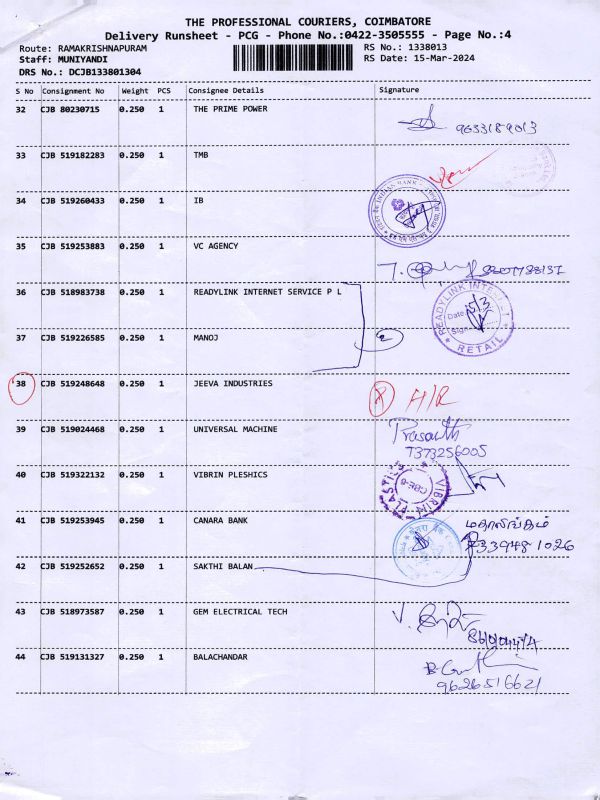 THE PROFESSIONAL COURIERS, COIMBATORE
Delivery Runsheet - PCG - Phone No.:0422-3505555 - Page No.:4
Route: RAMAKRISHNAPURAM RS No.: 1338013
Staff: MUNIYANDI RS Date: 15-Mar-2024
DRS No.: DCJB133801304
S No Consignment No Weight PCS Consignee Details Signature
32 CJB 80230715 0.250 1 THE PRIME POWER
9633189013
33 CJB 519182283 0.250 1 TMB
34 CJB 519260433 0.250 1 IB
INDIAN BANK
35 CJB 519253883 0.250 1 VC AGENCY
36 CJB 518983738 0.250 1 READYLINK INTERNET SERVICE P L
READYLINK INTERNET
Date 15/3
Sign
* RETAIL *
37 CJB 519226585 0.250 1 MANOJ 2
38 CJB 519248648 0.250 1 JEEVA INDUSTRIES
39 CJB 519024468 0.250 1 UNIVERSAL MACHINE Prasanth
7373256005
40 CJB 519322132 0.250 1 VIBRIN PLESHICS
VIBRIN PLASTICS
CBE-6
41 CJB 519253945 0.250 1 CANARA BANK மகாலிங்கம்
42 CJB 519252652 0.250 1 SAKTHI BALAN
43 CJB 518973587 0.250 1 GEM ELECTRICAL TECH
44 CJB 519131327 0.250 1 BALACHANDAR
9626516621